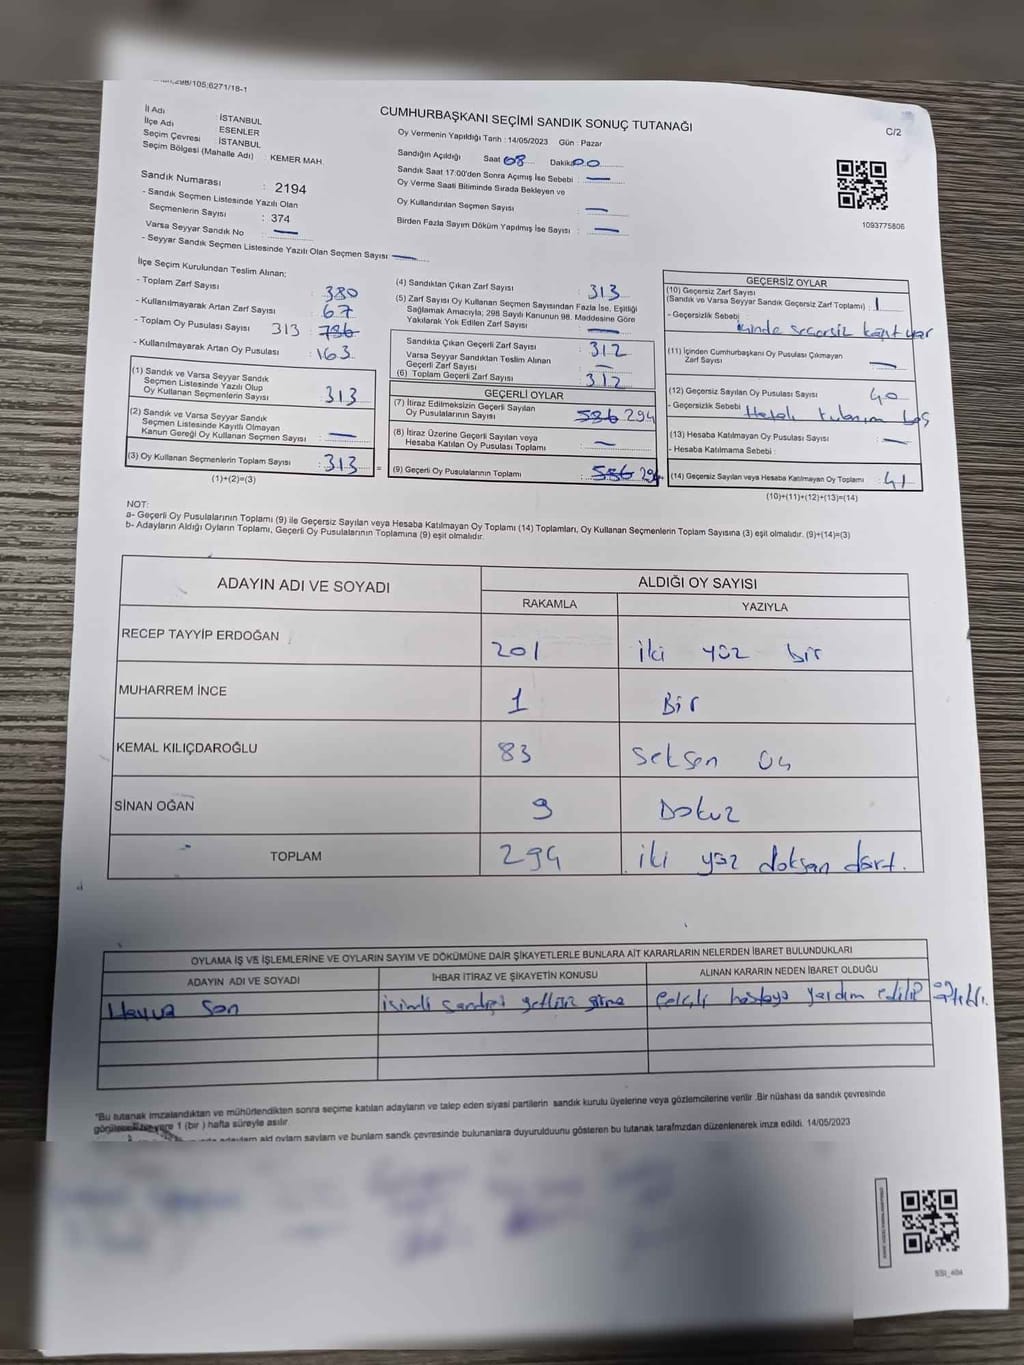 298/105:6271/18-1
CUMHURBAŞKANI SEÇİMİ SANDIK SONUÇ TUTANAĞI
C/2
İl Adı İSTANBUL
İlçe Adı ESENLER
Seçim Çevresi İSTANBUL
Seçim Bölgesi (Mahalle Adı) KEMER MAH.
Oy Vermenin Yapıldığı Tarih : 14/05/2023 Gün : Pazar
Sandığın Açıldığı Saat 08 Dakika 00
Sandık Saat 17:00'den Sonra Açımış İse Sebebi : —
Oy Verme Saati Bitiminde Sırada Bekleyen ve
Oy Kullandırılan Seçmen Sayısı : —
Birden Fazla Sayım Döküm Yapılmış İse Sayısı : —
1093775806
Sandık Numarası : 2194
- Sandık Seçmen Listesinde Yazılı Olan
Seçmenlerin Sayısı : 374
Varsa Seyyar Sandık No : —
- Seyyar Sandık Seçmen Listesinde Yazılı Olan Seçmen Sayısı : —
İlçe Seçim Kurulundan Teslim Alınan;
- Toplam Zarf Sayısı : 380
- Kullanılmayarak Artan Zarf Sayısı : 67
- Toplam Oy Pusulası Sayısı 313 786
- Kullanılmayarak Artan Oy Pusulası : 163
(1) Sandık ve Varsa Seyyar Sandık
Seçmen Listesinde Yazılı Olup
Oy Kullanan Seçmenlerin Sayısı : 313
(2) Sandık ve Varsa Seyyar Sandık
Seçmen Listesinde Kayıtlı Olmayan
Kanun Gereği Oy Kullanan Seçmen Sayısı : —
(3) Oy Kullanan Seçmenlerin Toplam Sayısı : 313 =
(1)+(2)=(3)
(4) Sandıktan Çıkan Zarf Sayısı : 313
(5) Zarf Sayısı Oy Kullanan Seçmen Sayısından Fazla İse, Eşitliği
Sağlamak Amacıyla; 298 Sayılı Kanunun 98. Maddesine Göre
Yakılarak Yok Edilen Zarf Sayısı : —
Sandıkta Çıkan Geçerli Zarf Sayısı : 312
Varsa Seyyar Sandıktan Teslim Alınan
Geçerli Zarf Sayısı : —
(6) Toplam Geçerli Zarf Sayısı : 312
GEÇERLİ OYLAR
(7) İtiraz Edilmeksizin Geçerli Sayılan
Oy Pusulalarının Sayısı : 586 294
(8) İtiraz Üzerine Geçerli Sayılan veya
Hesaba Katılan Oy Pusulası Toplamı : —
(9) Geçerli Oy Pusulalarının Toplamı : 586 294
GEÇERSİZ OYLAR
(10) Geçersiz Zarf Sayısı
(Sandık ve Varsa Seyyar Sandık Geçersiz Zarf Toplamı) : 1
- Geçersizlik Sebebi :
içinde segersiz kağıt var
(11) İçinden Cumhurbaşkanı Oy Pusulası Çıkmayan
Zarf Sayısı : —
(12) Geçersiz Sayılan Oy Pusulası Sayısı : 40
- Geçersizlik Sebebi : Hatalı kullanım boş
(13) Hesaba Katılmayan Oy Pusulası Sayısı : —
- Hesaba Katılmama Sebebi :
(14) Geçersiz Sayılan veya Hesaba Katılmayan Oy Toplamı : 41
(10)+(11)+(12)+(13)=(14)
NOT:
a- Geçerli Oy Pusulalarının Toplamı (9) ile Geçersiz Sayılan veya Hesaba Katılmayan Oy Toplamı (14) Toplamları, Oy Kullanan Seçmenlerin Toplam Sayısına (3) eşit olmalıdır. (9)+(14)=(3)
b- Adayların Aldığı Oyların Toplamı, Geçerli Oy Pusulalarının Toplamına (9) eşit olmalıdır.
ADAYIN ADI VE SOYADI ALDIĞI OY SAYISI
RAKAMLA YAZIYLA
RECEP TAYYİP ERDOĞAN 201 iki yüz bir
MUHARREM İNCE 1 Bir
KEMAL KILIÇDAROĞLU 83 seksen üç
SİNAN OĞAN 9 Dokuz
TOPLAM 294 iki yüz doksan dört.
OYLAMA İŞ VE İŞLEMLERİNE VE OYLARIN SAYIM VE DÖKÜMÜNE DAİR ŞİKAYETLERLE BUNLARA AİT KARARLARIN NELERDEN İBARET BULUNDUKLARI
ADAYIN ADI VE SOYADI İHBAR İTİRAZ VE ŞİKAYETİN KONUSU ALINAN KARARIN NEDEN İBARET OLDUĞU
isimli hastaya yardım edilip
"Bu tutanak imzalandıktan ve mühürlendikten sonra seçime katılan adayların ve talep eden siyasi partilerin sandık kurulu üyelerine veya gözlemcilerine verilir .Bir nüshası da sandık çevresinde
1 (bir ) hafta süreyle asılır.
duyurulduunu gösteren bu tutanak tarafmzdan düzenlenerek imza edildi. 14/05/2023